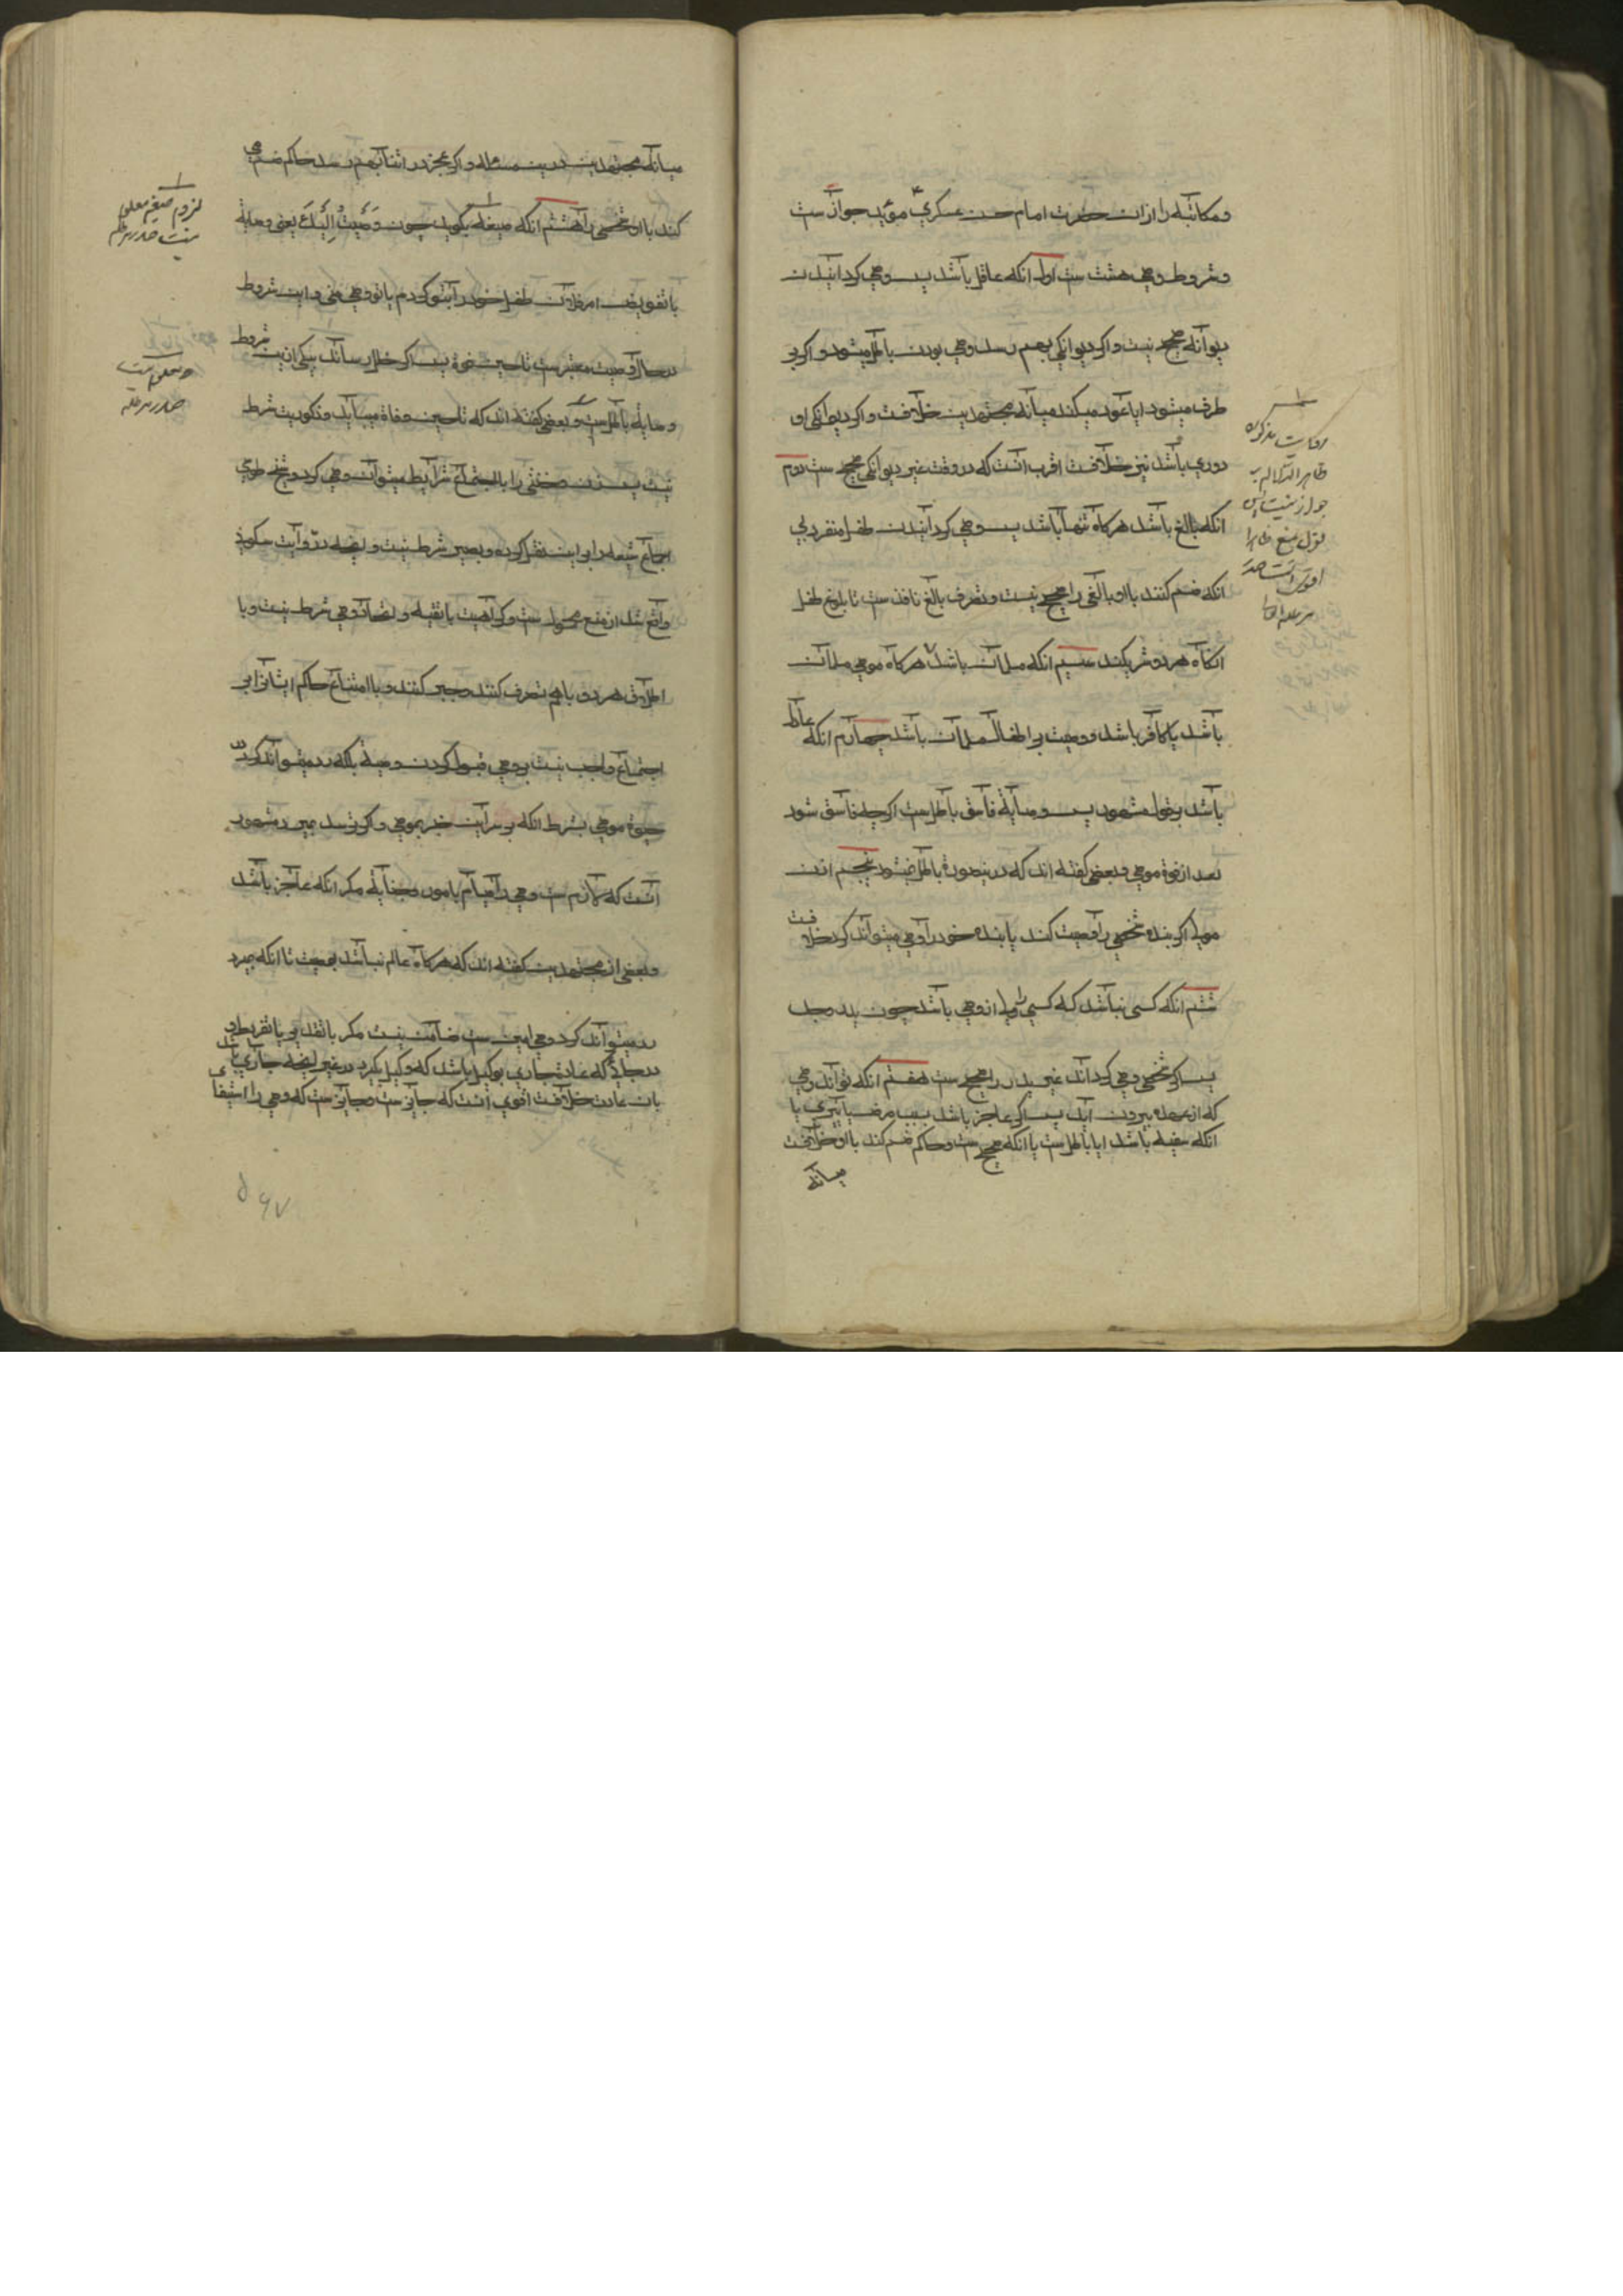 و مکاتبه را از ان حضرت امام حسن عسکری مؤید جواز ست
و شروط وصی هشت ست اول انکه عاقل باشد پس وصی کردانیدن
دیوانه صحیح نیست و اکر دیوانکی بهم رسد وصی بودن باطل میشود و اکر بر
طرف میشود ایا عود میکند میانه مجتهدین خلافست و اکر دیوانکی او
دوری باشد نیز خلافست اقرب انست که در وقت غیر دیوانکی صحیح ست دوم
انکه بالغ باشد هرکاه تنها باشد پس وصی کردانیدن طفل منفرد بی
انکه ضم کنند با او بالغی را صحیح نیست و تصرف بالغ نافذ ست تا بلوغ طفل
انکاه هر دو شریکند سیم انکه مسلمان باشد هرکاه موصی مسلمان
باشد یا کافر باشد و وصیت بر اطفال مسلمان باشد چهارم انکه عادل
باشد بر قول مشهور پس وصایة فاسق باطلست اکرچه فاسق شود
بعد از فوة موصی و بعضی کفته اند که درینصورة باطل نمیشود پنجم اذن
مولی اکر بنده شخصی را وصیت کند یا بنده خود را وصی میتواند کرد خلافست
ششم انکه کسی نباشد که کسی اولی از وصی باشد چون پدر و جد
پس اکر شخصی وصی کرداند غیر پدر را صحیح ست هفتم انکه تواند وصی
که از عهده بیرون اید پس اکر عاجز باشد بسبب مرض یا پیری یا
انکه سفیه باشد ایا باطلست یا انکه صحیح ست و حاکم ضم کند با او خلافست
میانه
روایت مذکوره
ظاهر الدلاله بر
جواز نیست پس
قول بمنع ظاهرا
اقوی است صدر
میانه مجتهدین درین مسئله و اکر عجز در اثنا بهم رسد حاکم ضم می
کند با او شخصی را هشتم انکه صیغه بکوید چون وَصَّیتُ اِلَیكَ یعنی وصایة
یا تفویض امر فلان طفل خود را بتو کردم یا تو وصی منی و این شروط
در حال وصیت معتبرست تا حین فوة پس اکر خلل رساند بیکی ازین شروط
وصایة باطلست و بعضی کفته اند که تا حین وفاة میباید و ذکوریت شرط
نیست پس زن و خنثی را با اجتماع شرایط میتوان وصی کرد و شیخ طوسی
اجماع شیعه را بر این نقل کرده و بصیر شرط نیست و انچه در روایت سکونی
واقع شد از منع محمول ست بر کراهیت یا تقیه و اتحاد وصی شرط نیست و با
اطلاق هر دو با هم تصرف کنند و جبر کنند و با امتناع حاکم ایشانرا بر
اجتماع واجب نیست بر وصی قبول کردن وصیة بلکه رد میتواند کرد در
حیوة موصی بشرط انکه برساند خبر بموصی و اکر نرسد بمیرد مشهور
انست که لازم ست وصی را قیام بامور وصایة مکر انکه عاجز باشد
و بعضی از مجتهدین کفته اند که هرکاه عالم نباشد بوصیت تا انکه بمیرد
رد میتواند کرد وصی امین ست ضامن نیست مکر با تعدی یا تفریط و
در جایی که عادت جاری بوکیل باشد که وکیل بکیرد در غیر انچه جاری باشد
بان عادت خلافست اقوی انست که جایز ست و جایز ست که وصی را استیفا
لزوم صیغه معلوم
نیست صدر
و معلوم نیست
صدر
۵۶۷